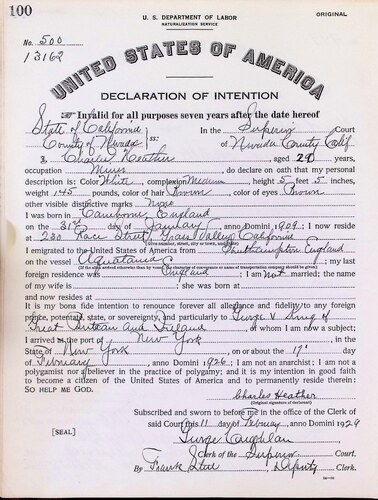 100
U. S. DEPARTMENT OF LABOR
ORIGINAL
NATURALIZATION SERVICE
No. 500
13162
UNITED STATES OF AMERICA
DECLARATION OF INTENTION
Invalid for all purposes seven years after the date hereof
State of California
In the Superior Court
County of Nevada ss:
of Nevada County Calif
I, Charles Heather, aged 29 years,
occupation Miner, do declare on oath that my personal
description is: Color White, complexion Medium, height 5 feet 5 inches,
weight 145 pounds, color of hair Brown, color of eyes Brown
other visible distinctive marks None
I was born in Camborne England
on the 31st day of January, anno Domini 19; I now reside
at 230 Race Street, Grass Valley, California
(Give number, street, city or town, and State.)
I emigrated to the United States of America from Southampton England
on the vessel Aquatania; my last
(If the alien arrived otherwise than by vessel, the character of conveyance or name of transportation company should be given.)
foreign residence was England; I am not married; the name
of my wife is; she was born at
and now resides at
It is my bona fide intention to renounce forever all allegiance and fidelity to any foreign
prince, potentate, state, or sovereignty, and particularly to George V King of
Great Britain and Ireland, of whom I am now a subject;
I arrived at the port of New York, in the
State of New York, on or about the 17 day
of February, anno Domini 1926; I am not an anarchist; I am not a
polygamist nor a believer in the practice of polygamy; and it is my intention in good faith
to become a citizen of the United States of America and to permanently reside therein:
SO HELP ME GOD.
Charles Heather
(Original signature of declarant.)
Subscribed and sworn to before me in the office of the Clerk of
said Court this 11 day of February, anno Domini 1929
[SEAL]
George Coughlan
Clerk of the Superior Court.
By Frank Steel, Deputy Clerk.